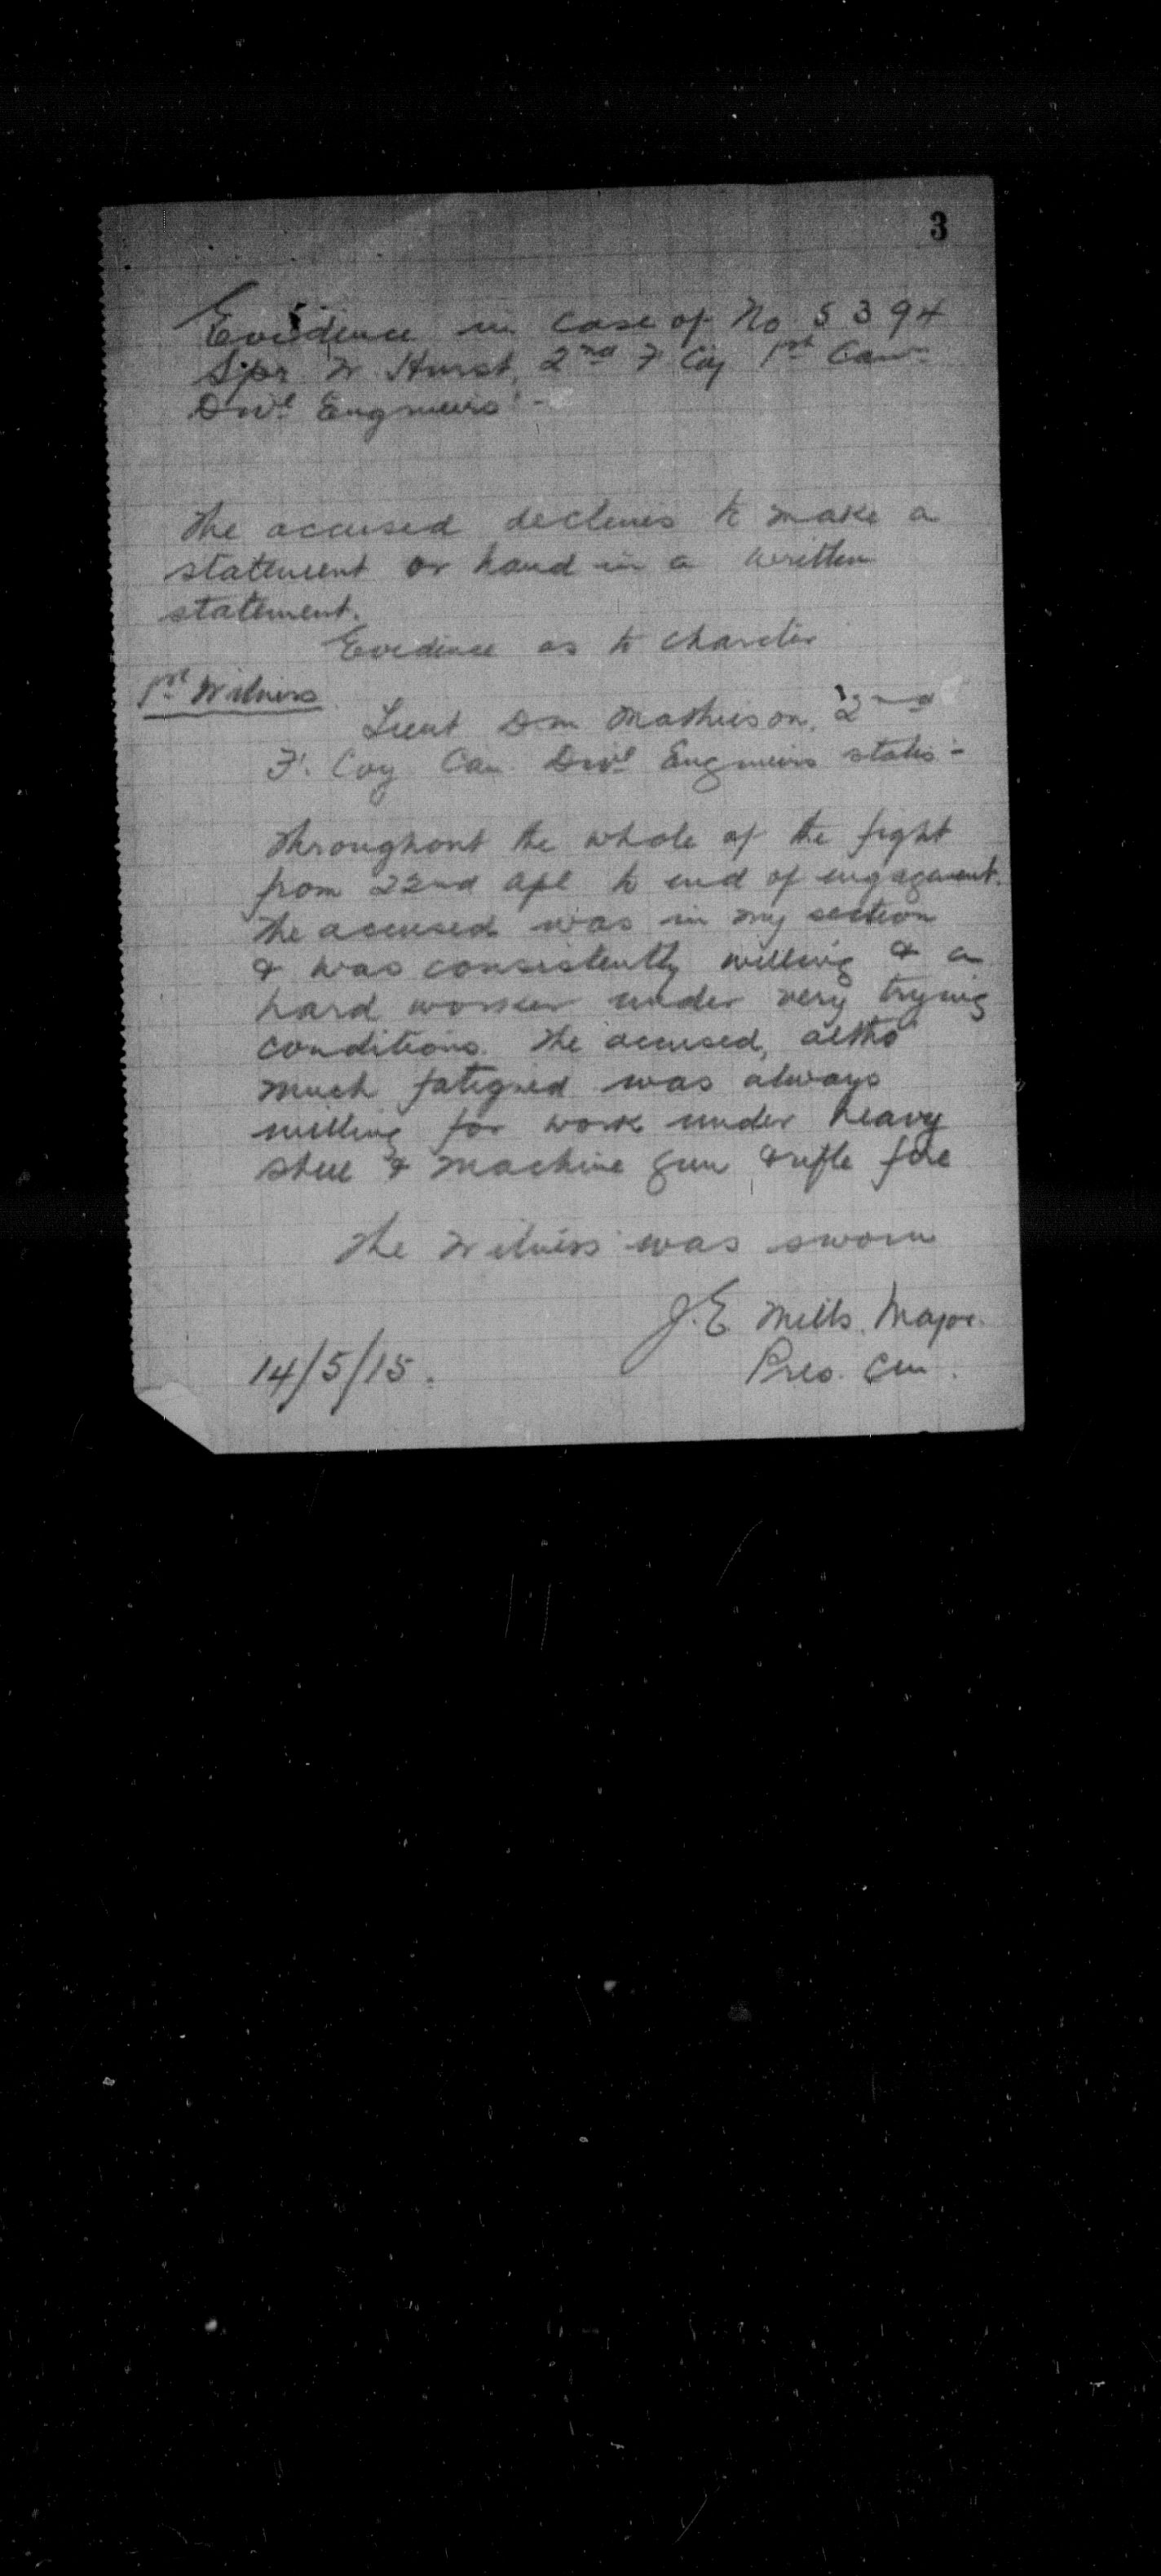 3
Evidence in case of No 5394
Spr W Hurst, 2nd F Coy 1st Can
Divl Engineers :-
The accused declines to make a
statement or hand in a written
statement.
Evidence as to charcter
1st Witness
Lieut D.M. Mathieson, 2nd
F. Coy Can. Divl Engineers states :-
Throughout the whole of the fight
from 22nd Apl to end of engagement.
The accused was in my section
& was consistently willing & a
hard worker under very trying
conditions. The accused, altho'
much fatigued was always
willing for work under heavy
shell & machine gun & rifle fire
The Witness was sworn
J.E Mills. Major.
14/5/15.
Pres.